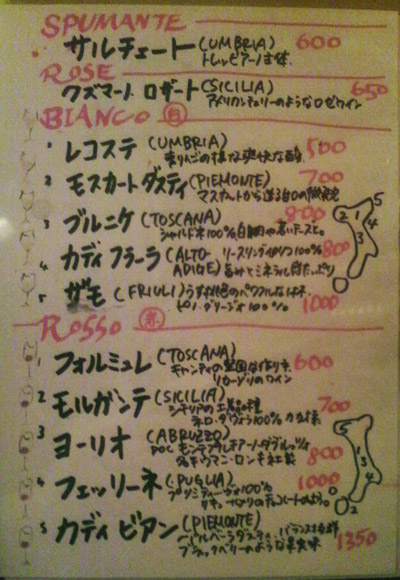 SPUMANTE
サルチェート (UMBRIA) 600
トレッビアーノ主体.
ROSE
クズマーノ ロザート (SICILIA) 650
アメリカンチェリーのようなロゼワイン
BIANCO 白
1 レコステ (UMBRIA) 500
青りんごの様な爽快な酸.
2 モスカート ダスティ (PIEMONTE) 700
マスカットから造る甘口の微発泡
3 ブルニケ (TOSCANA) 800
シャルドネ100%
4 カディフラーラ (ALTO-ADIGE) リースリングイタリコ100% 800
ミネラル感たっぷり
5 ザモ (FRIULI) うす桃色のパワフルな
ピノ・グリージォ100% 1000
5
2 1 4
3
ROSSO 赤
1 フォルミュレ (TOSCANA) 600
キャンティの堅固な作り手
リカーゾリのワイン
2 モルガンテ (SICILIA) 700
シチリアの土着品種
ネロ・ダヴォラ100%
3 ヨーリオ (ABRUZZO) 800
DOC モンテプルチアーノ・ダブルッツォ
ウマニ・ロンキ社製
4 フェッリーネ (PUGLIA) 1000
プリミティーヴォ100%
チョコレートのよう。
5 カディ ビアン (PIEMONTE) 1350
バルベーラダスティ. バランス抜群
ブラックベリーのような果実味
5
1
3
4
2